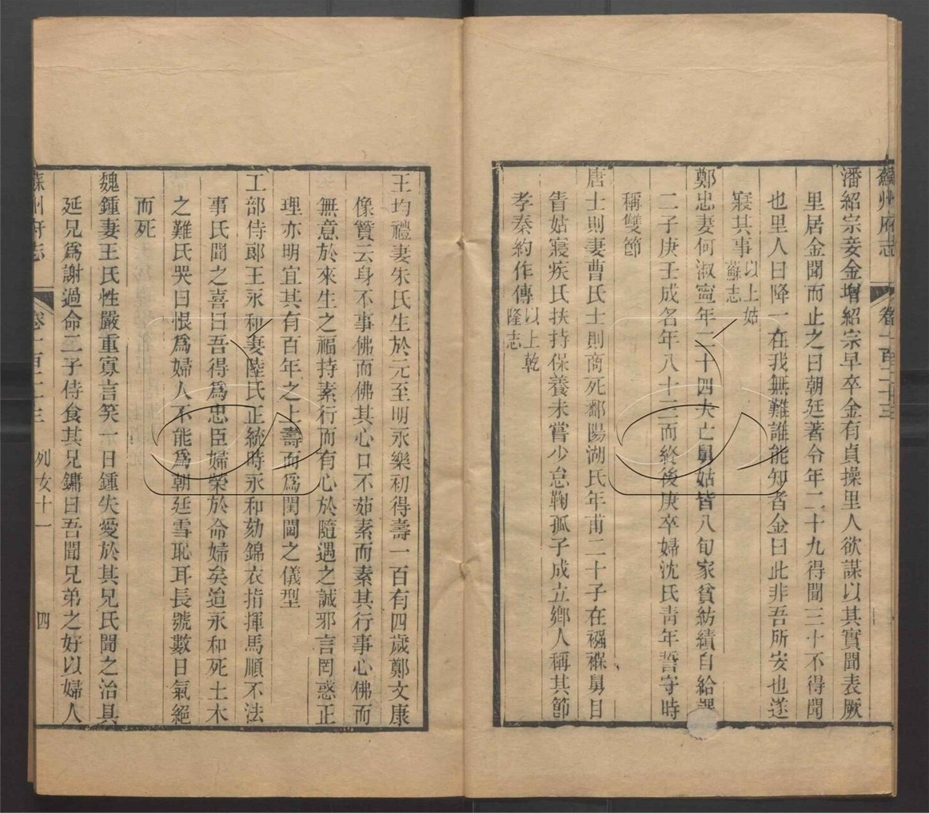 蘇州府志
卷一百二十三
潘紹宗妾金增紹宗早卒金有貞操里人欲謀以其實聞表厥
里居金聞而止之曰朝廷著令年二十九得聞三十不得聞
也里人曰降一在我無難誰能知者金曰此非吾所安也遂
寢其事以上姑蘇志
鄭忠妻何淑寧年二十四夫亡舅姑皆八旬家貧紡績自給課
二子庚壬成名年八十三而終後庚卒婦沈氏靑年誓守時
稱雙節
唐士則妻曹氏士則商死鄱陽湖氏年甫二十子在襁褓舅目
眚姑寢疾氏扶持保養未嘗少怠鞠孤子成立鄉人稱其節
孝秦約作傳以上乾隆志
王均禮妻朱氏生於元至明永樂初得壽一百有四歲鄭文康
像贊云身不事佛而佛其心口不茹素而素其行事心佛而
無意於來生之福持素行而有心於隨遇之誠邪言罔惑正
理亦明宜其有百年之上壽而爲閨閫之儀型
工部侍郎王永和妻陸氏正統時永和劾錦衣指揮馬順不法
事氏聞之喜曰吾得爲忠臣婦榮於命婦矣迨永和死土木
之難氏哭曰恨爲婦人不能爲朝廷雪恥耳長號數日氣絕
而死
魏鍾妻王氏性嚴重寡言笑一日鍾失愛於其兄氏聞之治具
延兄爲謝過命二子侍食其兄鏞曰吾聞兄弟之好以婦人
蘇州府志
卷一百二十三
列女十一
四